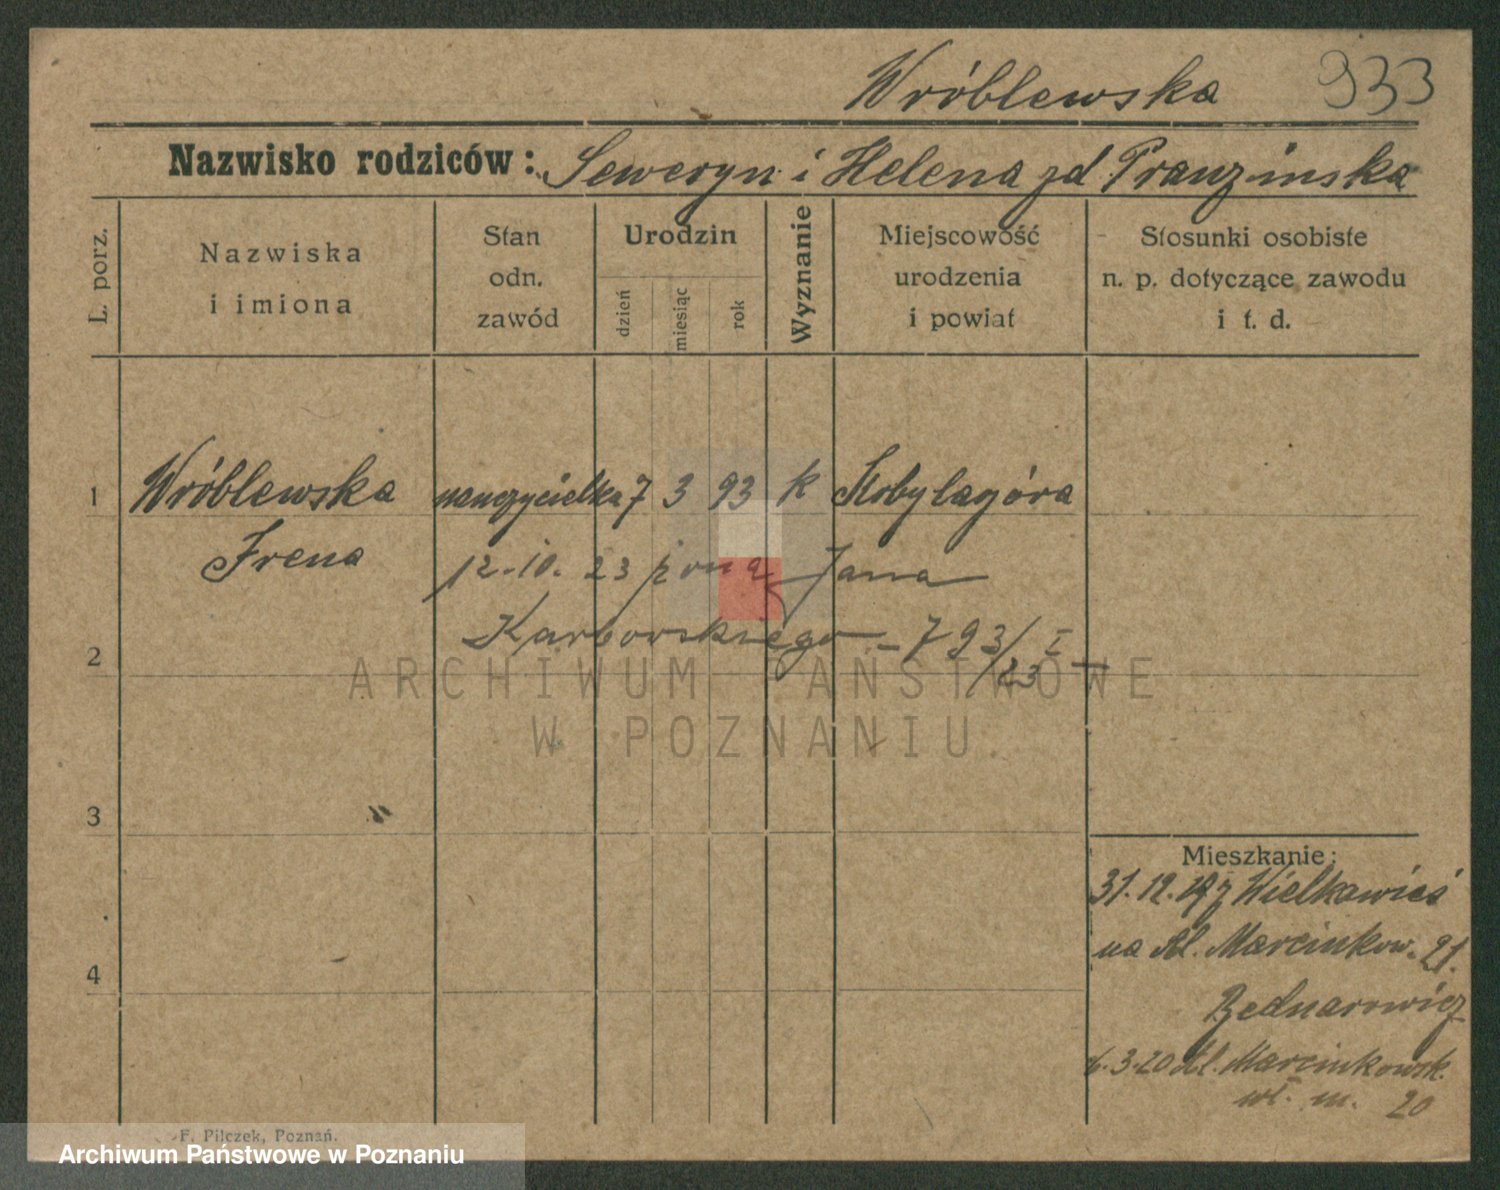 Wróblewska 933
Nazwisko rodziców: Seweryn i Helena zd Pranzinska
L. porz.
Nazwiska
i imiona
Stan
odn.
zawód
Urodzin
dzień
miesiąc
rok
Wyznanie
Miejscowość
urodzenia
i powiat
Stosunki osobiste
n. p. dotyczące zawodu
i t. d.
1 Wróblewska nauczycielka 7 3 93 k Kobylagóra
Irena
12.10.23 żona Jana
2 Karborskiego - 793/23 I
3
4
Mieszkanie:
31.12.19 z Wielkawieś
na Al. Marcinkow. 21.
Bednarowicz
6.3.20 Al. Marcinkowsk.
wł. m. 20
F. Pilczek, Poznań.
ARCHIWUM PAŃSTWOWE
W POZNANIU
Archiwum Państwowe w Poznaniu